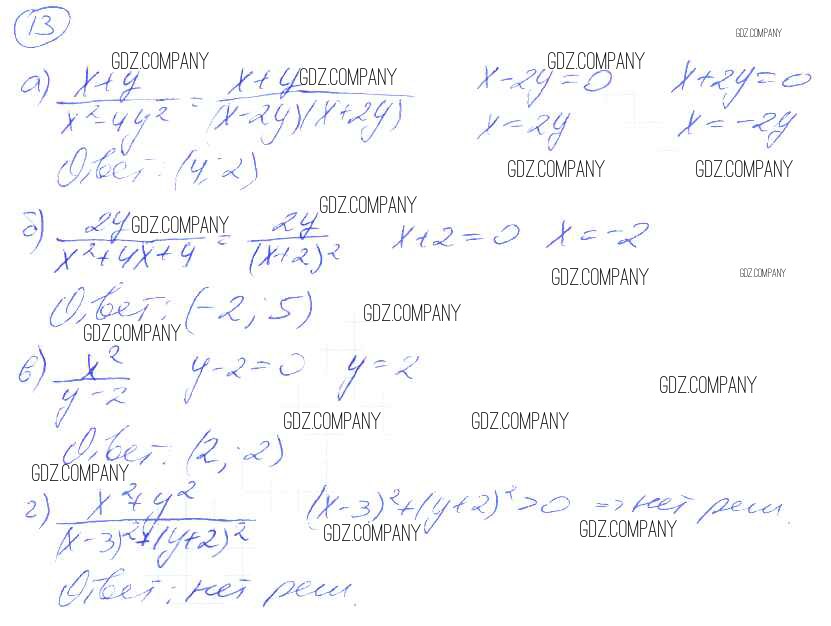 13
GDZ.COMPANY
а) (x+y)/(x²-4y²) = (x+y)/((x-2y)(x+2y))   x-2y=0   x+2y=0
GDZ.COMPANY GDZ.COMPANY GDZ.COMPANY
x=2y   x=-2y
Ответ: (4; 2)
GDZ.COMPANY GDZ.COMPANY
GDZ.COMPANY
б) 2y/(x²+4x+4) = 2y/(x+2)²   x+2=0   x=-2
GDZ.COMPANY
GDZ.COMPANY GDZ.COMPANY
Ответ: (-2; 5)
GDZ.COMPANY
GDZ.COMPANY
в) x²/(y-2)   y-2=0   y=2
GDZ.COMPANY
GDZ.COMPANY GDZ.COMPANY
Ответ: (2; 2)
GDZ.COMPANY
г) (x²+y²)/((x-3)²+(y+2)²)   (x-3)²+(y+2)²>0 => нет реш.
GDZ.COMPANY GDZ.COMPANY
Ответ: нет реш.